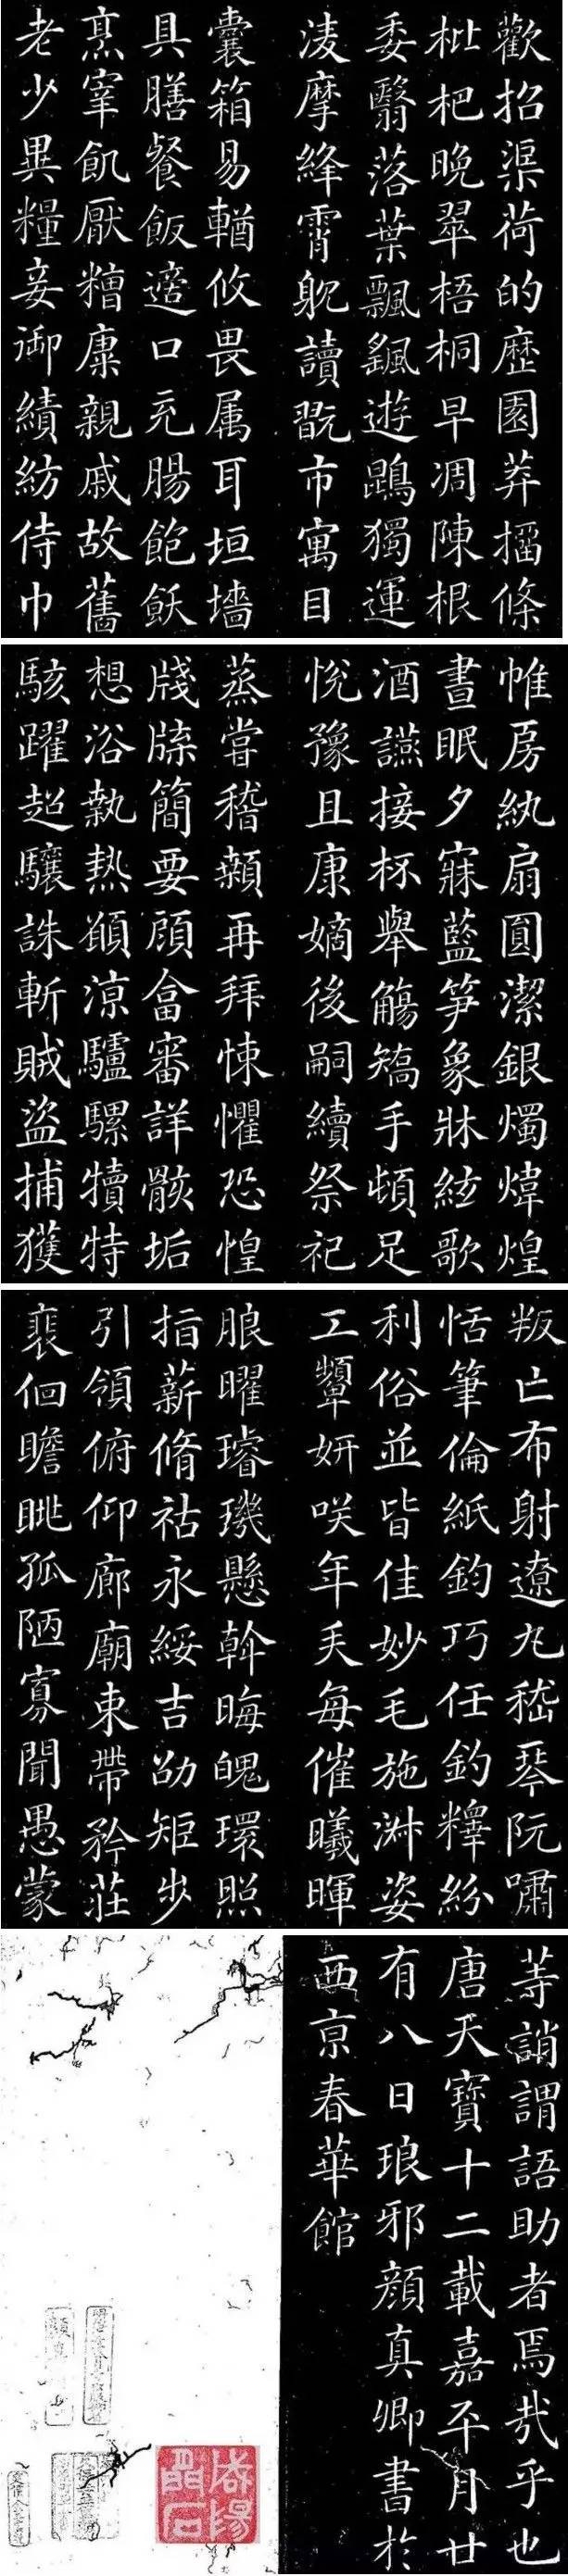 歡招渠荷的歷園莽㨨條
枇杷晚翠梧桐早凋陳根
委翳落葉飄颻遊鵾獨運
凌摩絳霄躭讀翫市寓目
囊箱易輶攸畏属耳垣墻
具膳餐飯適口充腸飽飫
烹宰飢厭糟糠親戚故舊
老少異糧妾御績紡侍巾
帷房紈扇圓潔銀燭煒煌
晝眠夕寐藍笋象牀絃歌
酒讌接杯舉觴矯手頓足
悅豫且康嫡後嗣續祭祀
蒸嘗稽顙再拜悚懼恐惶
牋牒簡要顧畣審詳骸垢
想浴執熱願凉驢騾犢特
駭躍超驤誅斬賊盜捕獲
叛亡布射遼丸嵇琴阮嘯
恬筆倫紙鈞巧任釣釋紛
利俗並皆佳妙毛施淑姿
工顰妍咲年矢每催曦暉
朖曜璿璣懸斡晦魄環照
指薪脩祜永綏吉劭矩步
引領俯仰廊廟束帶矜莊
裴佪瞻眺孤陋寡聞愚蒙
等誚謂語助者焉哉乎也
唐天寶十二載嘉平月廿
有八日琅邪顏真卿書於
西京春華館